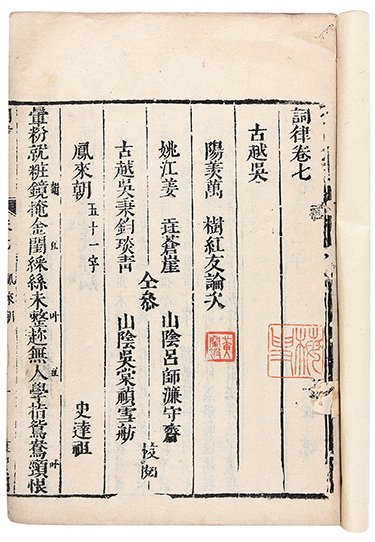 詞律卷七
古越吳
陽羨萬 樹紅友論次
姚江姜 垚蒼崖 山陰呂師濂守齋
仝叅 校閱
古越吳秉鈞琰青 山陰吳棠禎雪舫
鳳來朝 五十一字 史達祖
暈粉就粧鏡掩金閨綵絲未整趂無人學指鴛鴦頸恨
鳳來朝